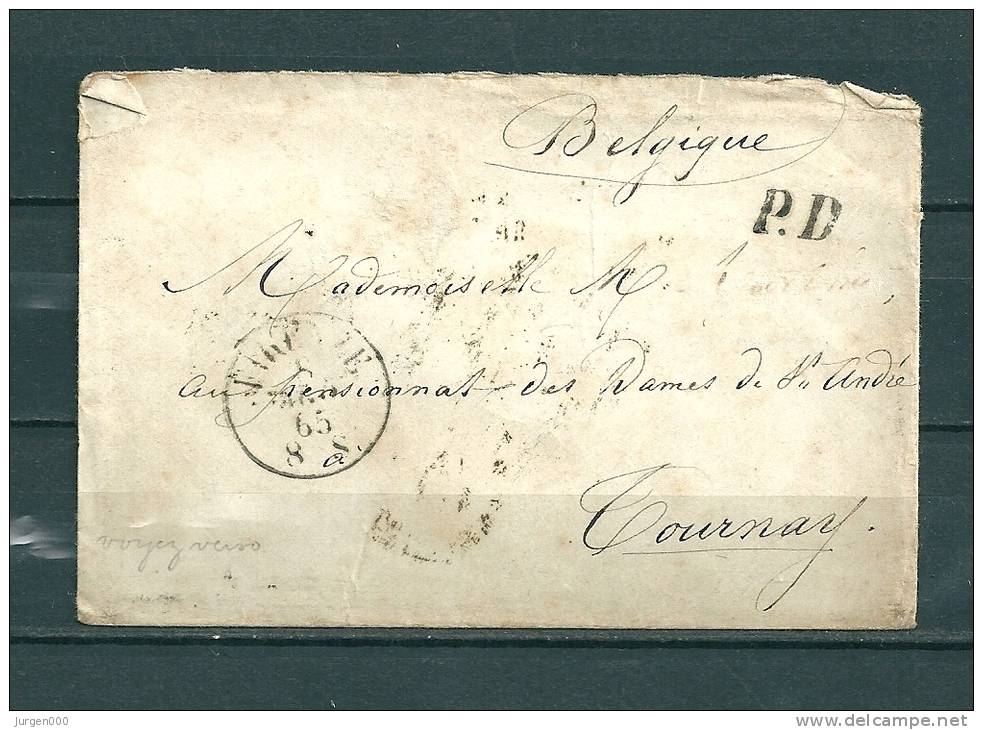 Belgique
P.D
Mademoiselle M.
au pensionnat des Dames de St André
65
8 S
a
Tournay.
voyez verso
Jurgen000
www.delcampe.net